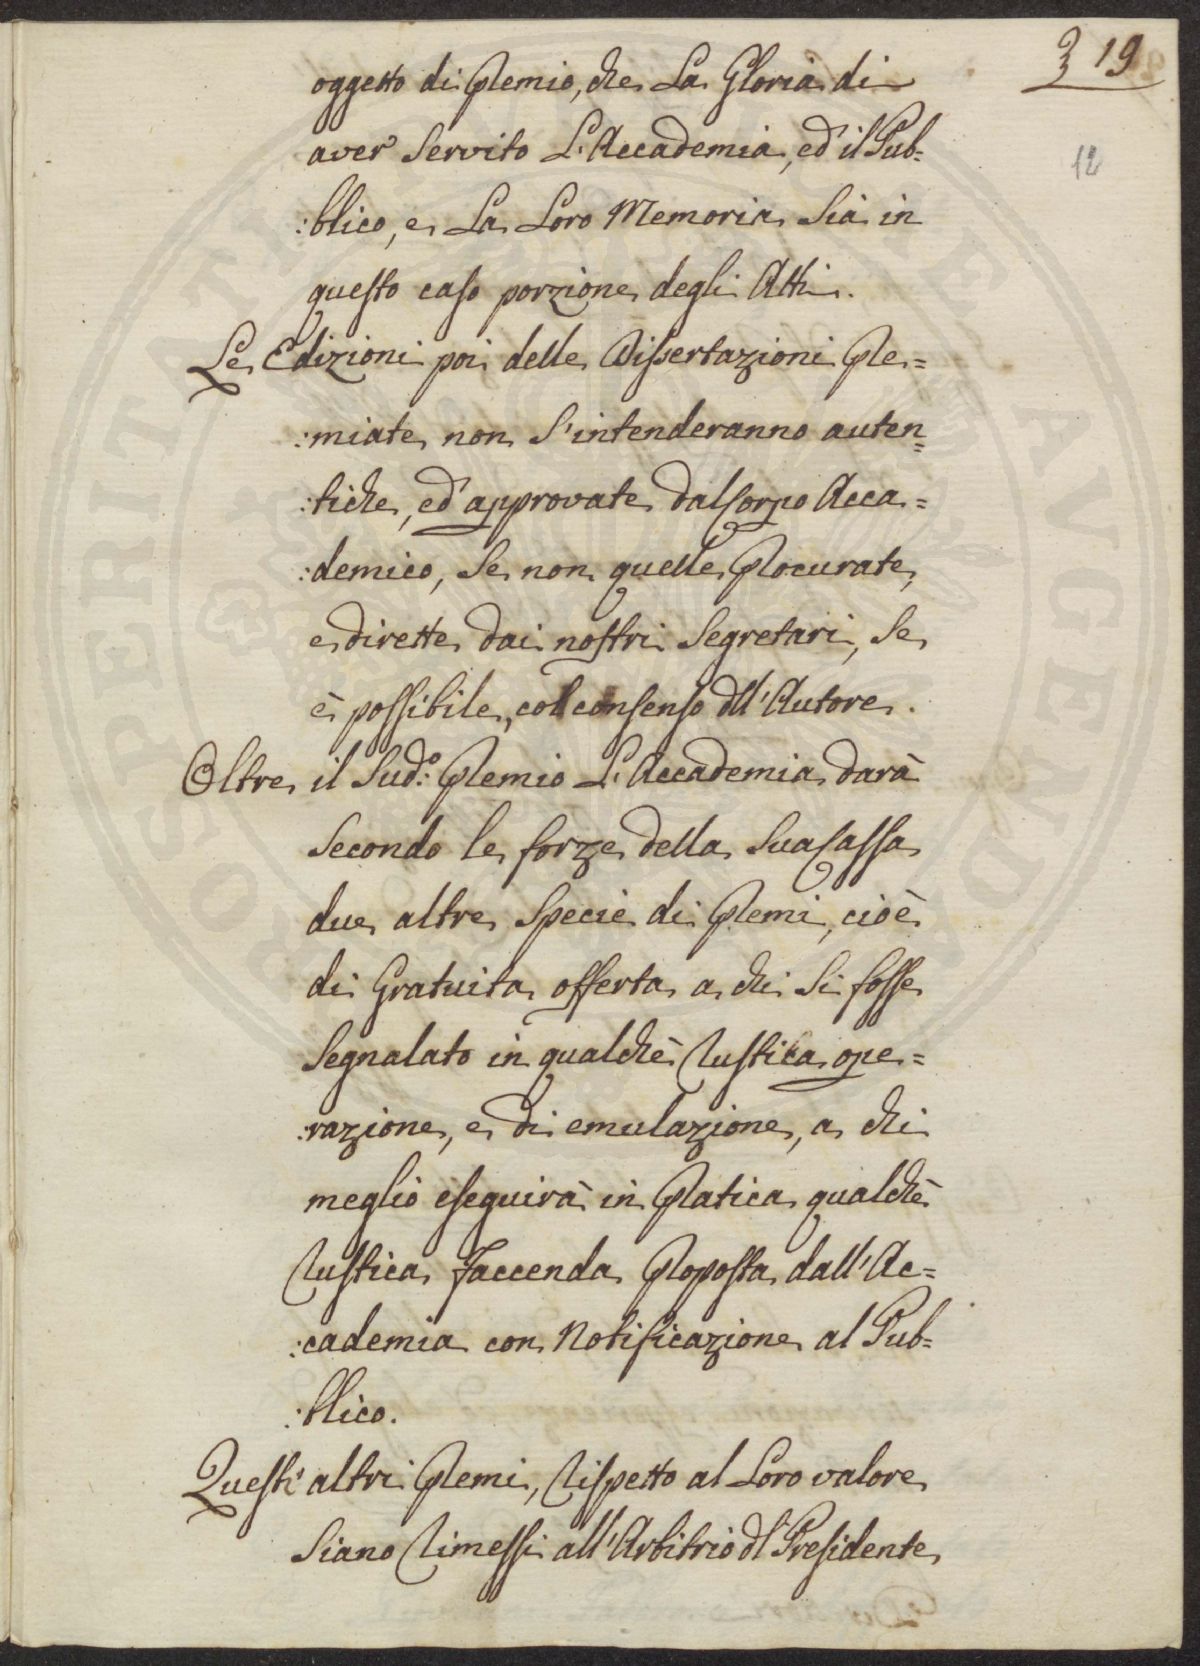 3 19
12
oggetto di Premio, che La Gloria di
aver Servito L'Accademia, ed il Pub=
:blico, e La Loro Memoria Sia in
questo caso porzione degli Atti.
Le Edizioni poi delle Dissertazioni Pre=
:miate non S'intenderanno auten=
:tiche, ed approvate dal Corpo Acca=
:demico, Se non quelle Procurate,
e dirette dai nostri Segretari, Se
è possibile, col consenso dll'Autore.
Oltre il Sud.º Premio L'Accademia darà
Secondo le forze della Sua Cassa
due altre Specie di Premi, cioè
di Gratuita offerta a chi Si fosse
Segnalato in qualchè Rustica ope=
:razione, e di emulazione, a chi
meglio eseguirà in Pratica qualchè
Rustica Faccenda Proposta dall'Ac=
:cademia con Notificazione al Pub=
:blico.
Questi altri Premi, Rispetto al Loro valore
Siano Rimessi all'Arbitrio dl Presidente
PROSPERITATI PUBLICAE AUGENDAE